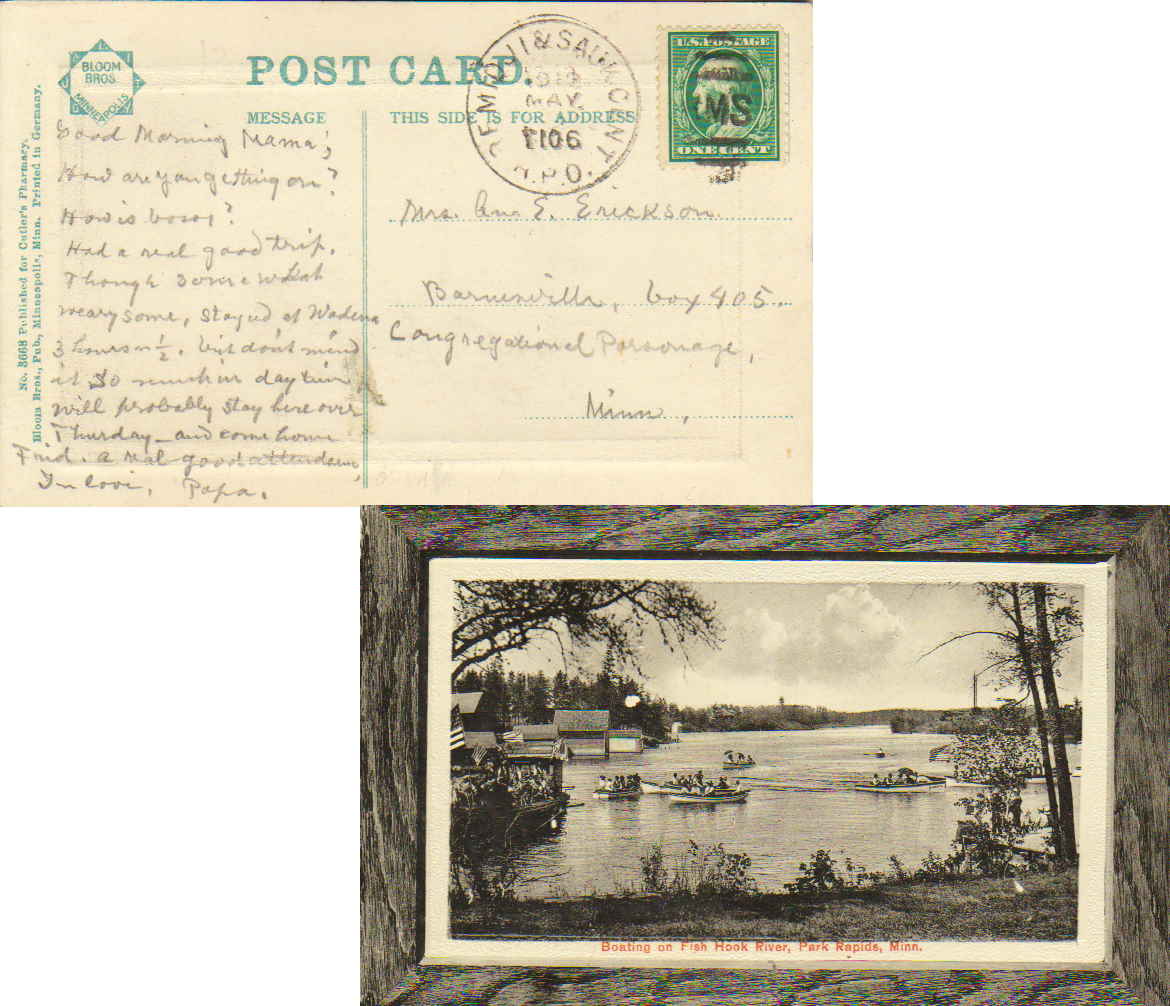 BLOOM
BROS
MINNEAPOLIS
POST CARD.
MESSAGE
THIS SIDE IS FOR ADDRESS
No. 8668 Published for Cutler's Pharmacy.
Bloom Bros., Pub., Minneapolis, Minn. Printed in Germany.
BEMIDJI & SAUK CENT.
MAY
R.P.O.
U.S. POSTAGE
ONE CENT
MS
Good Morning Mama;
How are you getting on?
How is
Had a real good trip.
Though somewhat
wearysome, stayed at Wadena
3 hours n ½. but don't mind
it so much in day time
will probably stay here over
Thurday – and come home
Frid. a real good attendance,
In love, Papa.
Mrs. E. Erickson.
Barnesville, box 405.
Congregational Parsonage,
Minn,
Boating on Fish Hook River, Park Rapids, Minn.